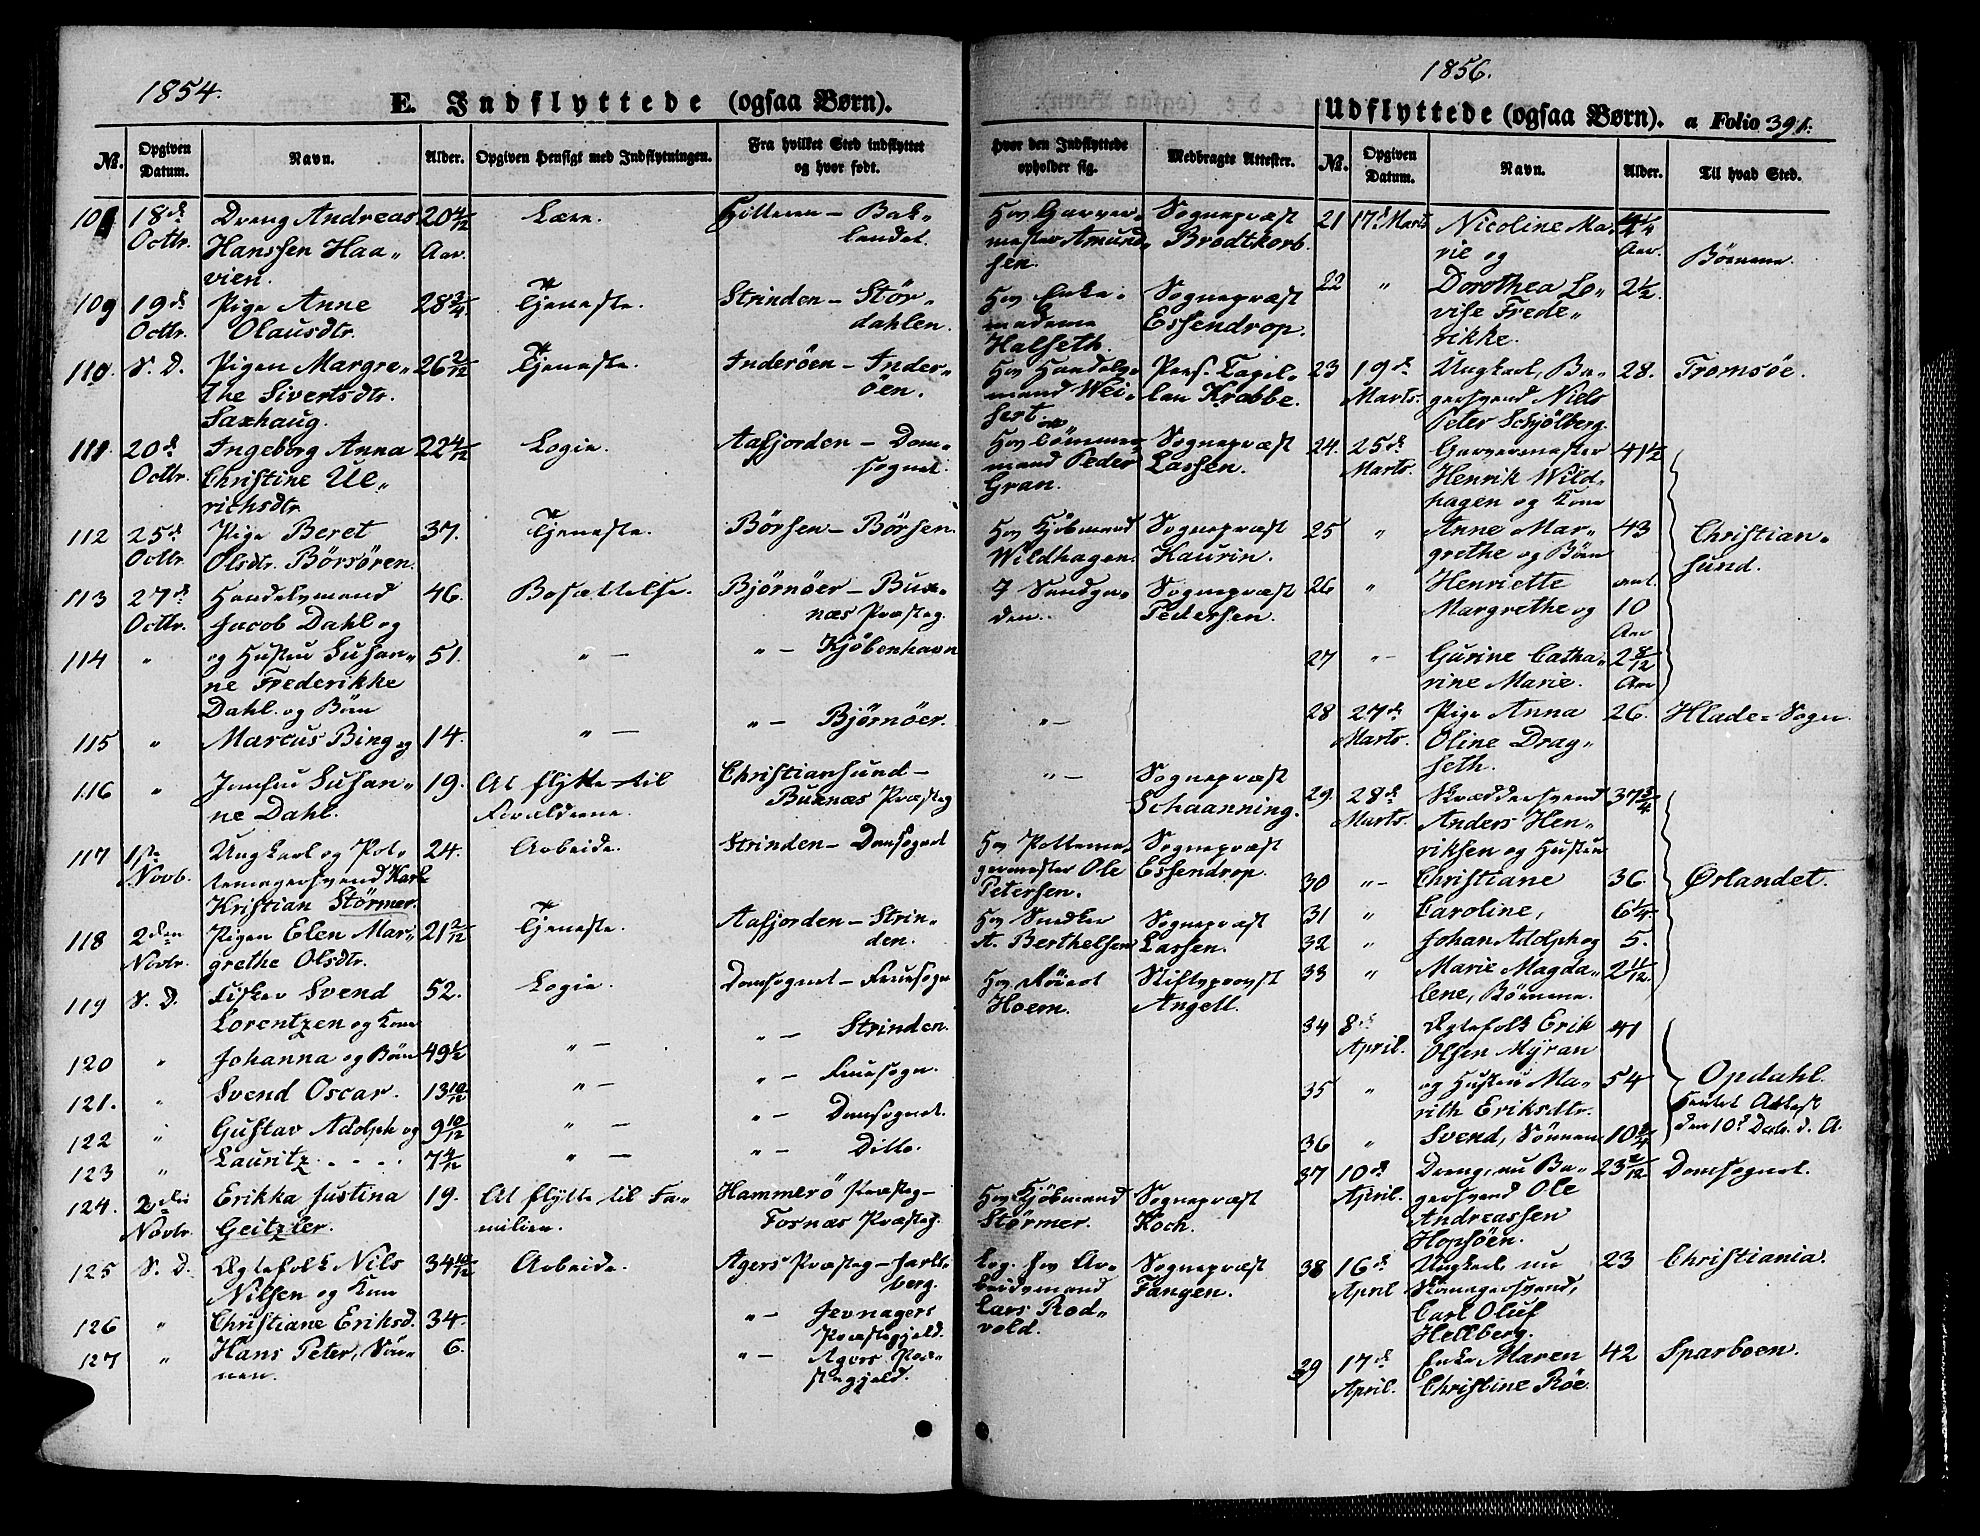 1854.
E. Indflyttede (ogsaa Børn).
No. Opgiven Datum. Navn. Alder. Opgiven Hensigt med Indflytningen. Fra hvilket Sted indflyttet og hvor født. Hvor den Indflyttede opholder sig. Medbragte Attester.
108 18d Octbr. Dreng Andreas Hanssen Haavien. 20 4/12 Aar. Lære. Hitteren – Baklandet. Hos Garvermester Amundsen. Sognepræst Brodtkorb.
109 19d Octbr. Pige Anne Olausdtr. 28 3/4. Tjeneste. Strinden – Størdahlen. Hos Enkemadame Halseth. Sognepræst Essendrop.
110. S. D. Pigen Margrethe Sivertsdtr. Saxhaug. 26 2/12 Tjeneste. Inderøen – Inderøen. Hos Handelsmand Weisert. Pers. Capellan Krabbe.
111 20d Octbr. Ingeborg Anna Christine Ulrichsdtr 22 4/12 Logie. Aafjorden – Domsognet. Hos Tømmermand Peder Gran. Sognepræst Lassen.
112 25d Octbr. Pige Beret Olsdtr. Börsören. 37. Tjeneste. Börsen – Börsen. Hos Kjöbmand Wildhagen Sognepræst Kaurin.
113 27d Octbr. Handelsmand Jacob Dahl og 46. Bosættelse. Bjørnöer – Buxnæs Præsteg. I Sandgaden. Sognepræst Pedersen.
114 " og Hustru Susanne Frederikke Dahl og Börn 51. " – " – Kjöbenhavn
115 " Marcus Bing og 14. " – " – Bjørnöer. " –
116 " Jomfru Susanne Dahl. 19. At flytte til Forældrene. Christiansund – Buxnæs Præsteg " – Sognepræst Schaanning.
117 1ste Novb. Ungkarl og Pottemagersvend Karl Kristian Störmer. 24. Arbeide. Strinden – Domsognet Hos Pottemagermester Ole Petersen. Sognepræst Essendrop.
118 2den Novbr. Pigen Elen Margrethe Olsdtr. 21 2/12 Tjeneste. Aafjorden – Strinden. Hos Snedker A. Berthelsen Sognepræst Lassen.
119 S. D. Fisker Svend Lorentzen og Kone 52. Logie. Domsognet – Fruesogn Hos Hoem. Stiftsprovst Angell.
120 " Johanna og Börn 49 1/2 " – " – Strinden.
121. " Svend Oscar. 13 10/12 " – " – Fruesogn.
122 " Gustav Adolph og 9 10/12 " – " – Domsognet.
123 " Lauritz . . . . 7 4/12 " – " – Ditto.
124. 2den Novbr. Erikka Justina Geitzler. 19. At flytte til Familien. Hammerö Præsteg – Fosnæs Præsteg. Hos Kjöbmand Störmer. Sognepræst Koch.
125 S. D. Ægtefolk Nils Nilsen og Kone 34 10/12 Arbeide. Agers Præsteg – Jarlsberg. Log. hos Arbeidsmand Lars Rodvold. Sognepræst Fangen.
126 " Christiane Eriksd. 34. " – Jevnagers Præstegjeld.
127 " Hans Peter, Sönnen. 6. " – Agers Præstegjeld.
1856.
Udflyttede (ogsaa Børn). a Folio 391.
No. Opgiven Datum. Navn. Alder. Til hvad Sted.
21 17d Marts Nicoline Marie og 4 1/4 Aar Börnene.
22 " Dorothea Lovise Frederikke. 2 1/2.
23 19d Marts. Ungkarl, Bagersvend Niels Peter Schjölberg. 28. Tromsöe.
24. 25d Marts. Garvermester Henrik Wildhagen og Kone 41 1/2
25 " Anne Margrethe og Börn 43 Christiansund.
26 " Henriette Margrethe og 10 Aar
27 " – Gurine Catharine Marie. 2 8/12 Aar
28 27d Marts. Pige Anna Oline Dragseth. 26. Hlade-Sogn.
29. 28d Marts. Skræddersvend Anders Henriksen og Hustru 37 3/4
30 " – Christiane 36. Ørlandet.
31 " Caroline, 6 1/4
32 " Johan Adolph og 5.
33 " Marie Magdalene, Börnene. 2 11/12.
34 8d April. Ægtefolk Erik Olsen Myran 41
35 " og Hustru Marith Eriksdtr. 54 Opdahl. hentet Attest den 10d Debr. d. A.
36 " Svend, Sönnen 10 3/4
37 10d April. Dreng, nu Bagersvend Ole Andreassen Hopsöen. 23 2/12 Domsognet.
38 16d April Ungkarl nu Skomagersvend, Carl Oluf Hellberg. 23 Christiania.
39 17d April. Enke Maren Christine Röe. 42 Sparboen.